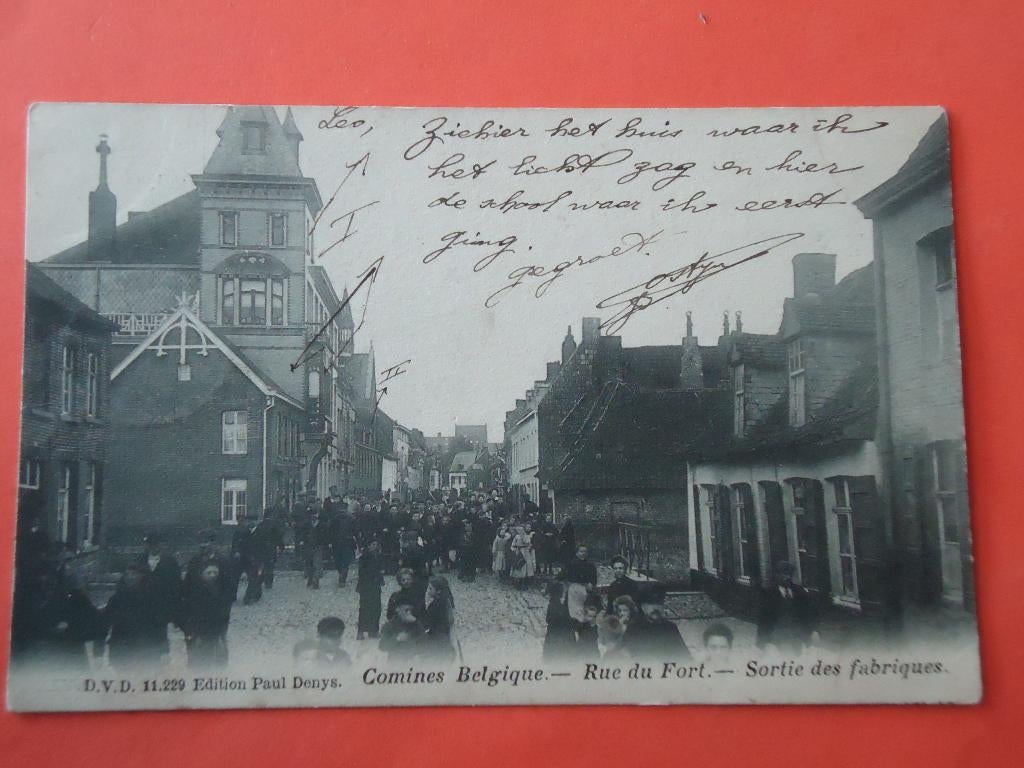 Leo, Ziehier het huis waar ik
het licht zag en hier
de school waar ik eerst
ging.
gegroet.
I
II
D.V.D. 11.229 Edition Paul Denys. Comines Belgique.— Rue du Fort.— Sortie des fabriques.